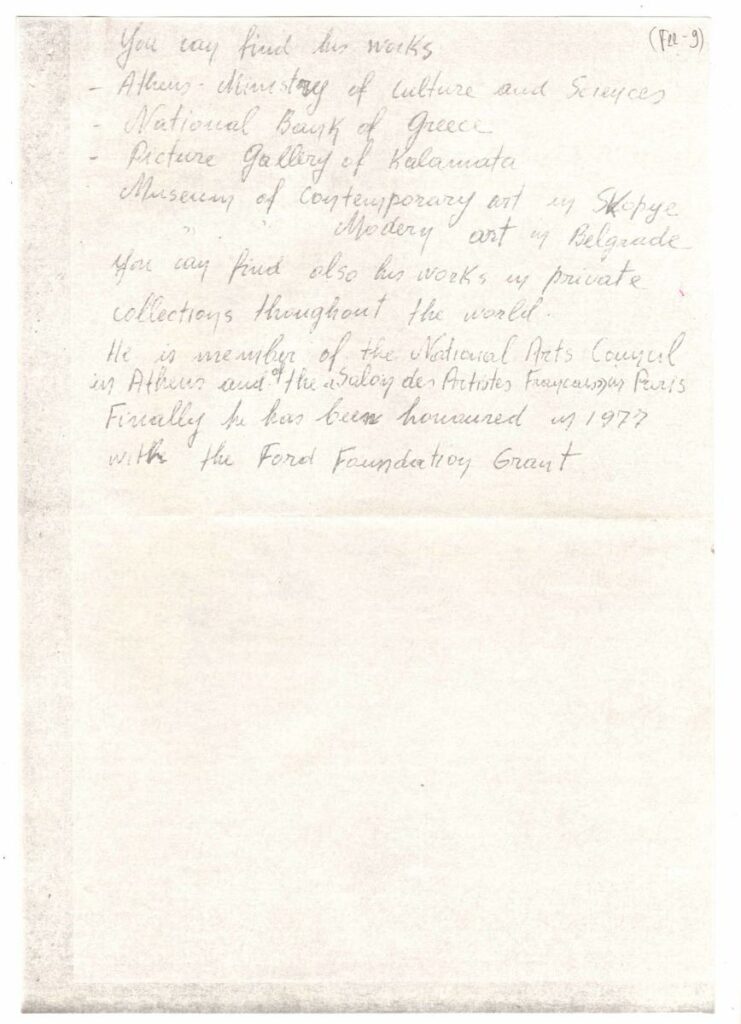 (FN-9)
You can find his works
- Athens - Ministry of culture and Sciences
- National Bank of Greece
- Picture Gallery of Kalamata
Museum of Contemporary art in Skopye
" " Modern art in Belgrade
You can find also his works in private
collections thoughout the world.
He is member of the National Arts Council
in Athens and of the Salon des Artistes Francais in Paris
Finally he has been honoured in 1977
with the Ford Foundation Grant